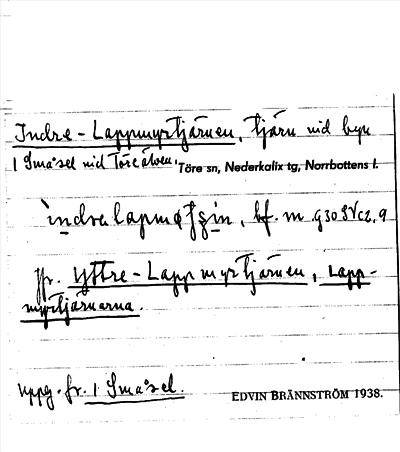 Indre-Lappmyrtjärnen, tjärn vid byn
1 Småsel vid Töreälven. Töre sn, Nederkalix tg, Norrbottens l.
bf. m. g 30 SV c2, 9
Jfr. Yttre-Lappmyrtjärnen, Lapp-
myrtjärnarna.
Uppg. fr. 1 Småsel.
EDVIN BRÄNNSTRÖM 1938.